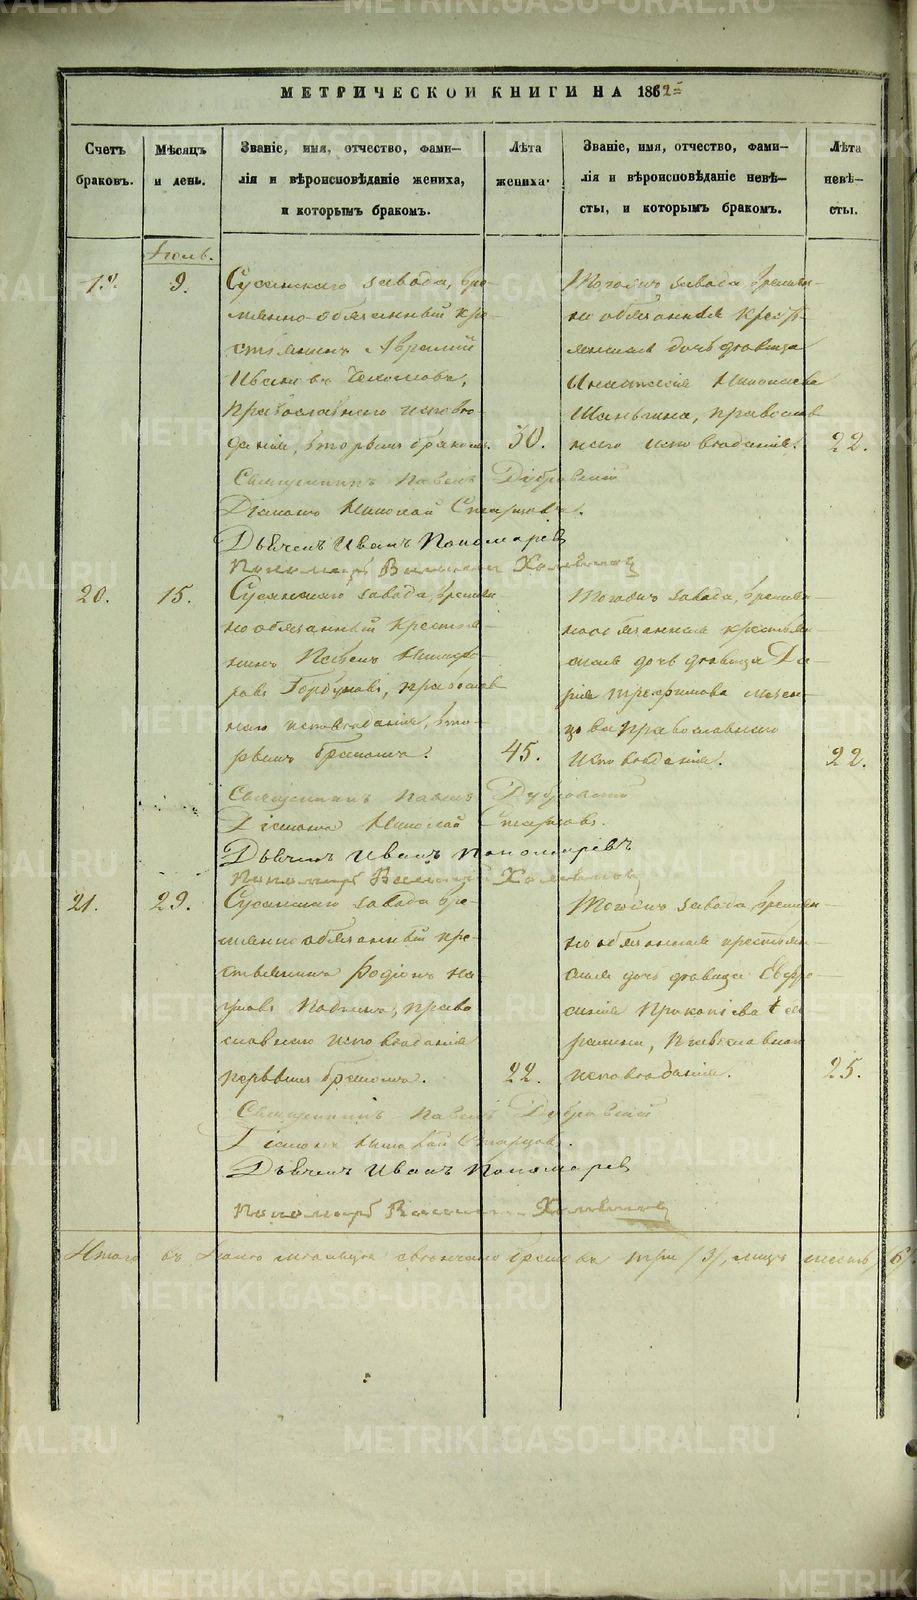 МЕТРИЧЕСКОЙ КНИГИ НА 1862
Счетъ браковъ.
Мѣсяцъ и день.
Званіе, имя, отчество, фами-
лія и вѣроисповѣданіе жениха,
и которымъ бракомъ.
Лѣта жениха.
Званіе, имя, отчество, фами-
лія и вѣроисповѣданіе невѣ-
сты, и которымъ бракомъ.
Лѣта невѣ-
сты.
Іюль.
19.
9.
Сусанскаго завода, вре-
менно-обязанный кре-
стьянинъ Авраамій
Ивановъ
православнаго исповѣ-
данія, вторымъ бракомъ.
30.
Тогожъ завода времен-
но обязанная крестья-
нская дочь дѣвица
Анастасія Николаева
православ
наго исповѣданія.
22.
Священникъ Павелъ Дубровскій
Діаконъ Николай Старцовъ.
Дьячекъ Иванъ Пономаревъ
Пономарь
20.
15.
Сусанскаго завода, времен
но обязанный крестья-
нинъ Павелъ Никифо-
ровъ Горбуновъ, православ
наго исповѣданія, вто-
рымъ бракомъ.
45.
Тогожъ завода, времен-
нообязанная крестьян-
ская дочь дѣвица Да-
рия Трефилова Мезен-
цова православнаго
исповѣданія.
22.
Священникъ Павелъ Дубровскій
Діаконъ Николай Старцовъ.
Дьячекъ Иванъ Пономаревъ
Пономарь
21.
29.
Сусанскаго завода вре-
менно обязанный кре-
стьянинъ Родіонъ На-
умовъ право
славнаго исповѣданія
первымъ бракомъ.
22.
Тогожъ завода времен-
но обязанная крестьян-
ская дочь дѣвица Евфро-
синія Прокопіева
православнаго
исповѣданія.
25.
Священникъ Павелъ Дубровскій
Діаконъ Николай Старцовъ.
Дьячекъ Иванъ Пономаревъ
Пономарь
Итого въ Іюлѣ мѣсяцѣ свѣнчано браковъ три /3/, лицъ шесть /6/.
METRIKI.GASO-URAL.RU